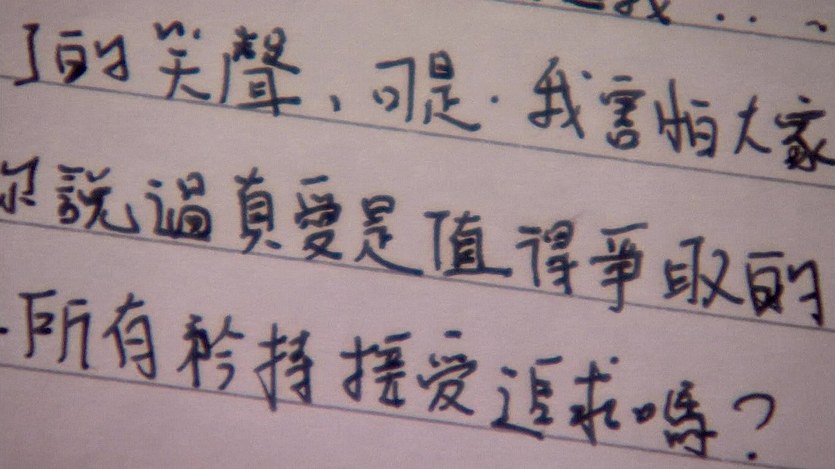 的笑聲、可是.我害怕大家
你說過真愛是值得爭取的
.所有矜持接受追求嗎?